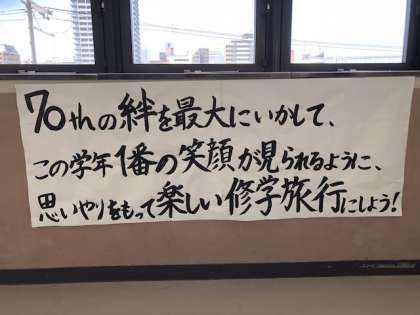 70thの絆を最大にいかして、
この学年1番の笑顔が見られるように、
思いやりをもって楽しい修学旅行にしよう!